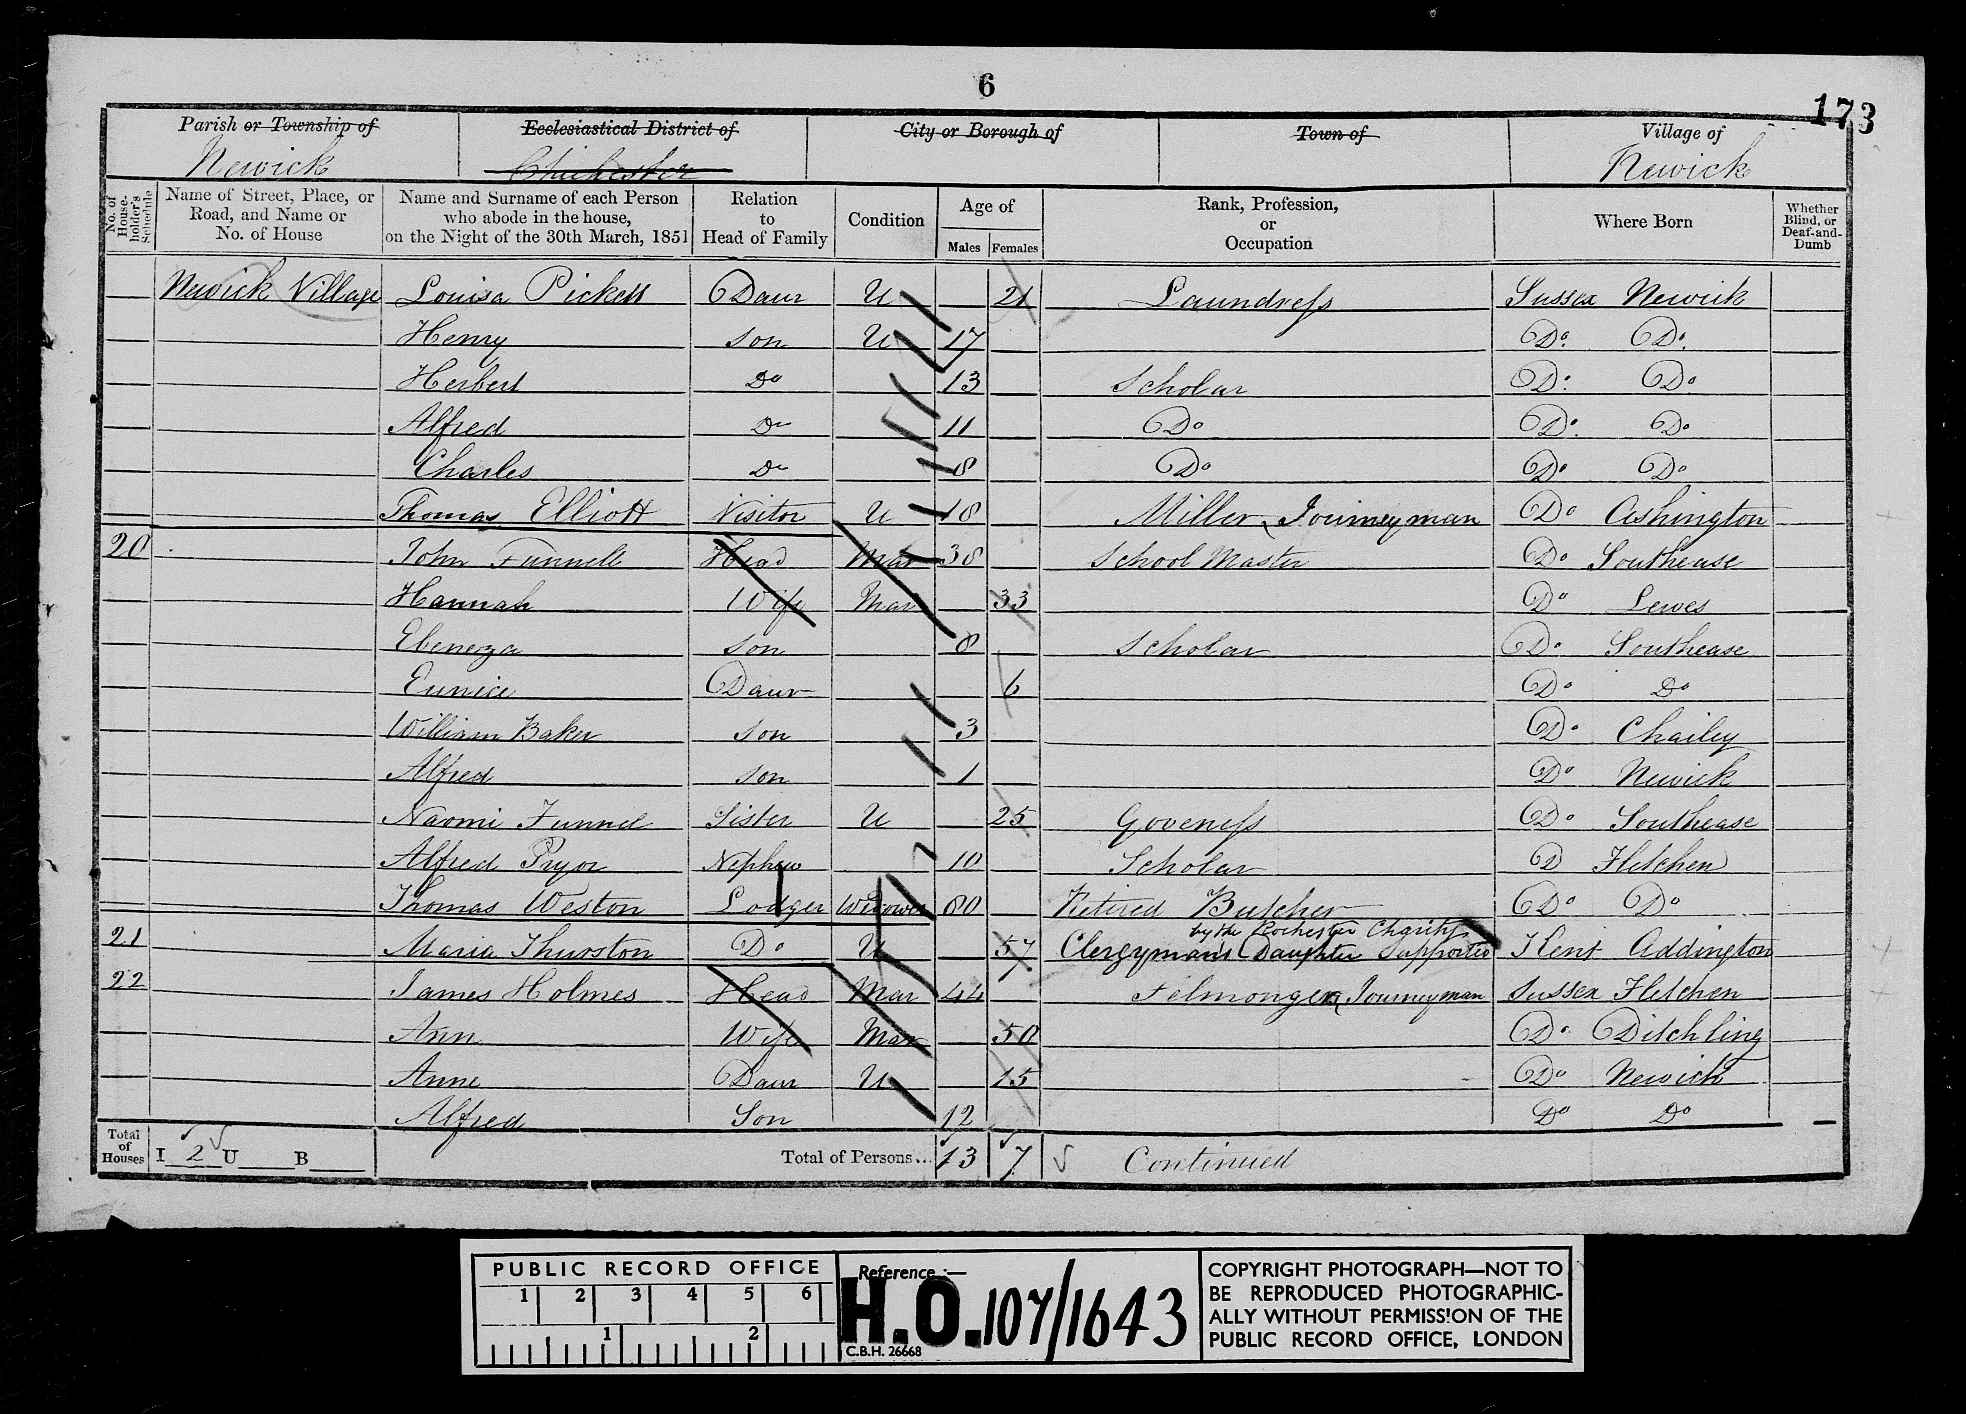 6
173
Parish or Township of Ecclesiastical District of City or Borough of Town of Village of
Newick Chichester Newick
No. of House-holder's Schedule Name of Street, Place, or Road, and Name or No. of House Name and Surname of each Person who abode in the house, on the Night of the 30th March, 1851 Relation to Head of Family Condition Age of Males Females Rank, Profession, or Occupation Where Born Whether Blind, or Deaf-and-Dumb
Newick Village Louisa Pickett Daur U 21 Laundress Sussex Newick
Henry Son U 17 Do. Do.
Herbert Do 13 Scholar Do. Do
Alfred Do 11 Do Do. Do
Charles Do 8 Do Do Do
Thomas Elliott Visitor U 18 Miller Journeyman Do Ashington
20 John Funnell Head Mar 38 School Master Do Southease
Hannah Wife Mar 33 Do Lewes
Ebeneza Son 8 Scholar Do. Southease
Eunice Daur 6 Do Do
William Baker Son 3 Do. Chailey
Alfred Son 1 Do Newick
Naomi Funnel Sister U 25 Goveness Do Southease
Alfred Pryor Nephew 10 Scholar D Fletchen
Thomas Weston Lodger Widower 80 Retired Butcher Do Do
by the Rochester Charity
21 Maria Thurston Do U 57 Clergyman's Daughter Supported Kent Addington
22 James Holmes Head Mar 44 Felmonger Journeyman Sussex Fletchen
Ann Wife Mar 50 Do. Ditchling
Anne Daur U 15 Do Newick
Alfred Son 12 Do Do
Total of Houses I 2 U B Total of Persons... 13 7 Continued
PUBLIC RECORD OFFICE
1 2 3 4 5 6
1 2
Reference:—
H.O. 107/1643
C.B.H. 26668
COPYRIGHT PHOTOGRAPH—NOT TO
BE REPRODUCED PHOTOGRAPHIC-
ALLY WITHOUT PERMISSION OF THE
PUBLIC RECORD OFFICE, LONDON